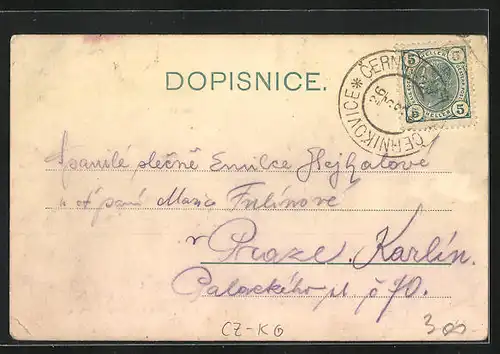 DOPISNICE.
ČERNÍKOVICE * ČERNIKOVICE
5 HELLER 5
5 HELLER 5
Spanilé slečně Emilce Hejhalové
u ct. paní Marie Fulínové
v Praze. Karlín.
Palackého ul č 70.
CZ-KG
300